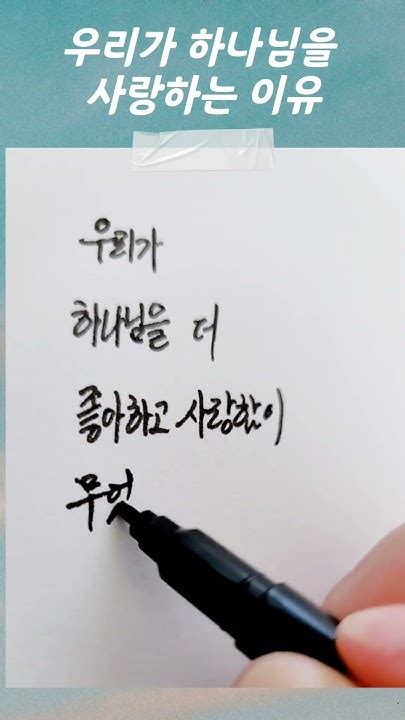 우리가 하나님을
사랑하는 이유
우리가
하나님을 더
좋아하고 사랑함이
무엇